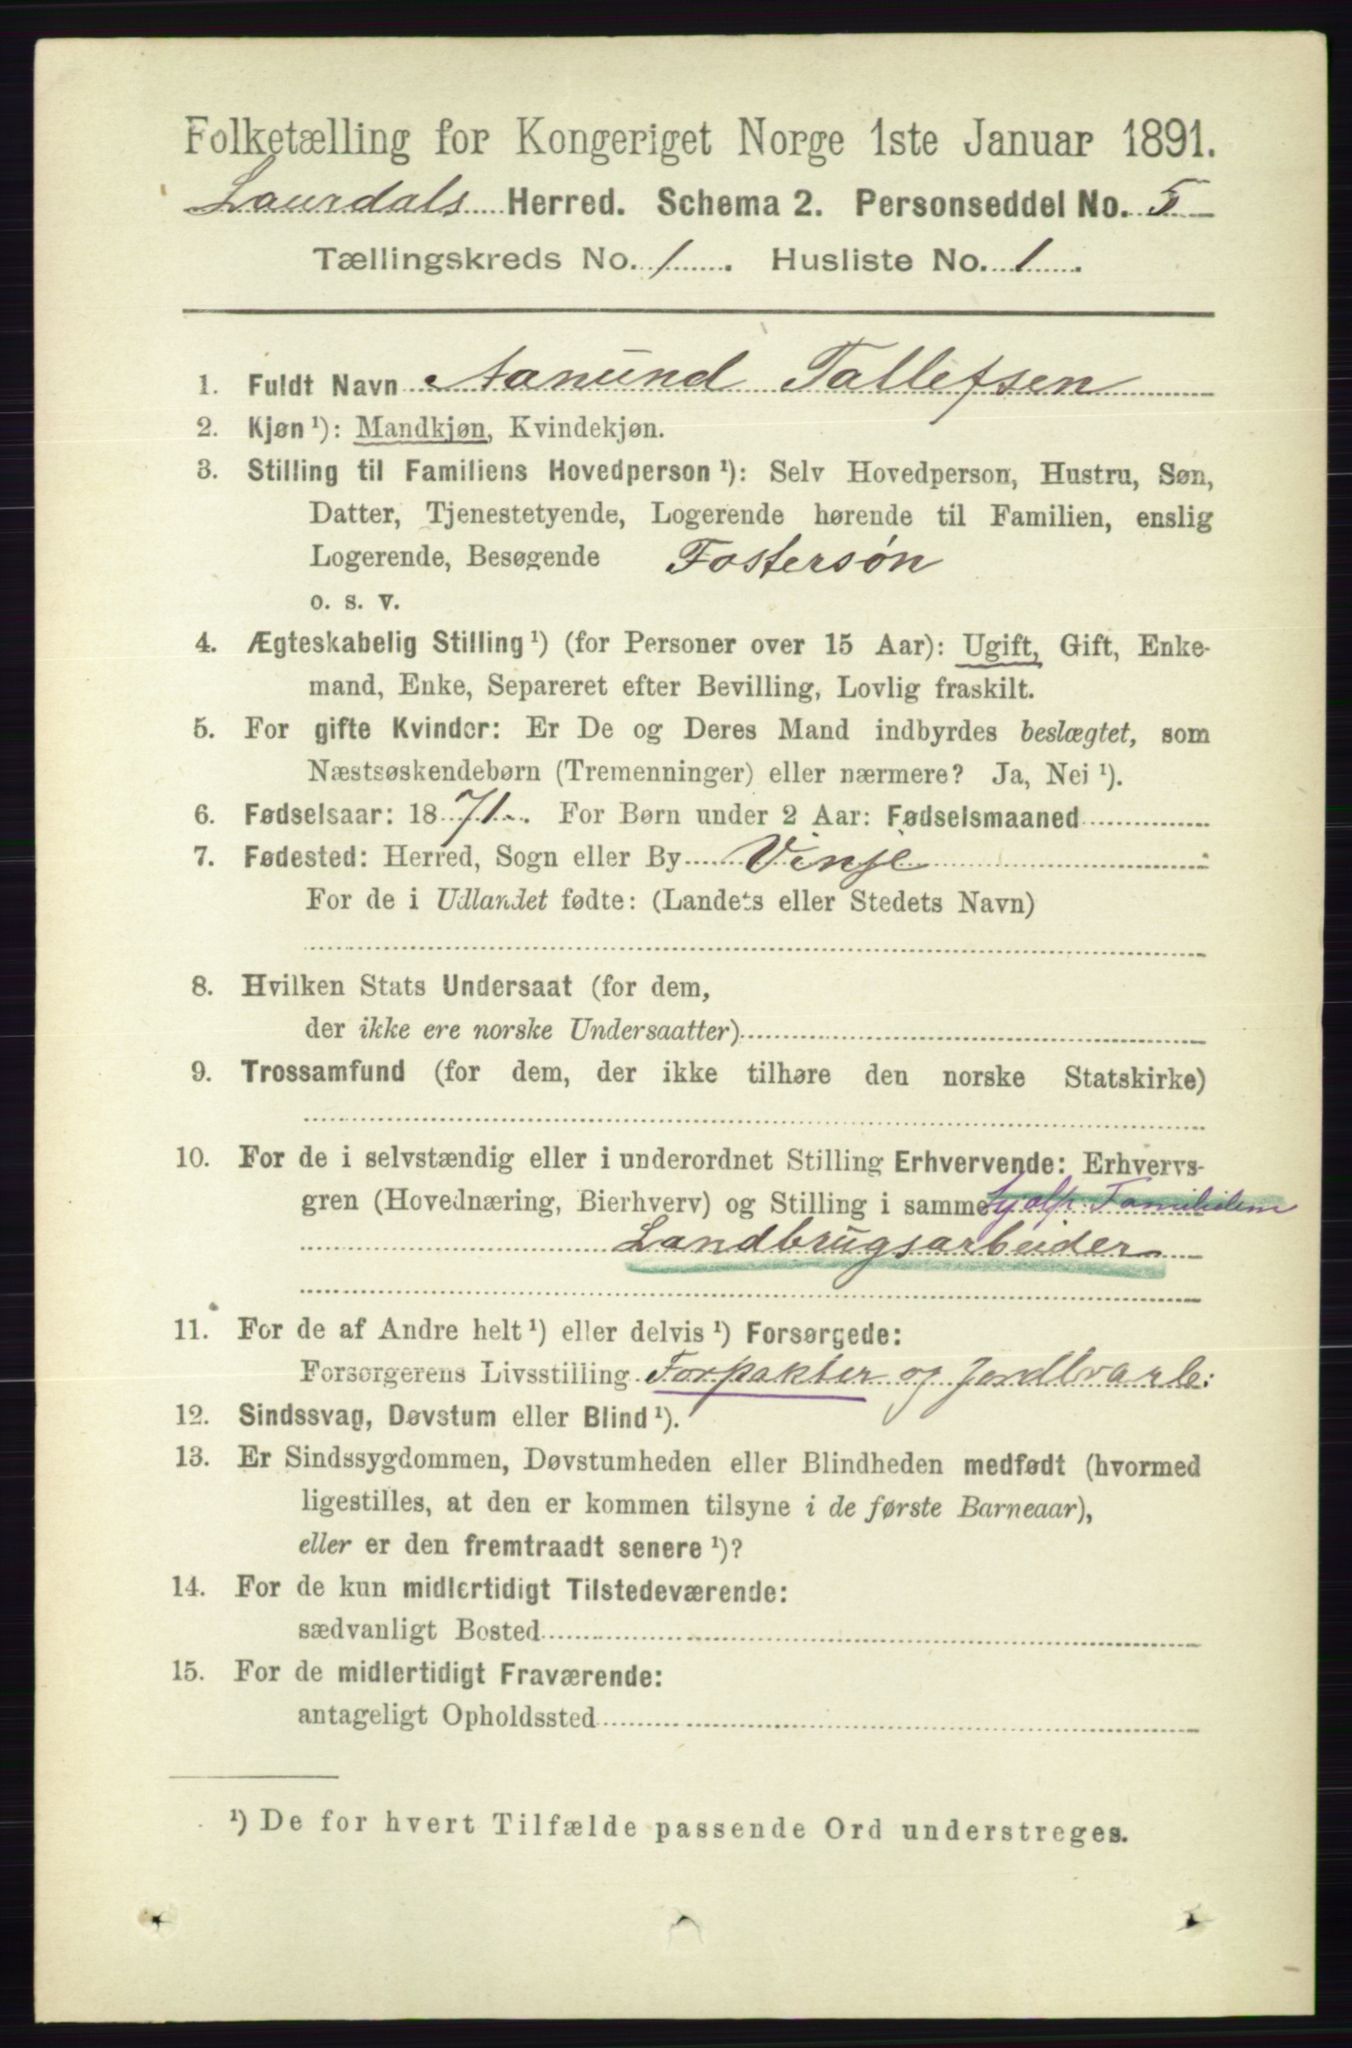 Folketælling for Kongeriget Norge 1ste Januar 1891.
Laurdals Herred. Schema 2. Personseddel No. 5
Tællingskreds No. 1. Husliste No. 1.
1. Fuldt Navn Aanund Tallefsen
2. Kjøn ¹): Mandkjøn, Kvindekjøn.
3. Stilling til Familiens Hovedperson ¹): Selv Hovedperson, Hustru, Søn,
Datter, Tjenestetyende, Logerende hørende til Familien, enslig
Logerende, Besøgende Fostersøn
o. s. v.
4. Ægteskabelig Stilling ¹) (for Personer over 15 Aar): Ugift, Gift, Enke-
mand, Enke, Separeret efter Bevilling, Lovlig fraskilt.
5. For gifte Kvinder: Er De og Deres Mand indbyrdes beslægtet, som
Næstsøskendebørn (Tremenninger) eller nærmere? Ja, Nei ¹).
6. Fødselsaar: 1871. For Børn under 2 Aar: Fødselsmaaned
7. Fødested: Herred, Sogn eller By Vinje
For de i Udlandet fødte: (Landets eller Stedets Navn)
8. Hvilken Stats Undersaat (for dem,
der ikke ere norske Undersaatter)
9. Trossamfund (for dem, der ikke tilhøre den norske Statskirke)
10. For de i selvstændig eller i underordnet Stilling Erhvervende: Erhvervs-
gren (Hovednæring, Bierhverv) og Stilling i samme
Landbrugsarbeider
11. For de af Andre helt ¹) eller delvis ¹) Forsørgede:
Forsørgerens Livsstilling Forpakter og Jordbrarb:
12. Sindssvag, Døvstum eller Blind ¹).
13. Er Sindssygdommen, Døvstumheden eller Blindheden medfødt (hvormed
ligestilles, at den er kommen tilsyne i de første Barneaar),
eller er den fremtraadt senere ¹)?
14. For de kun midlertidigt Tilstedeværende:
sædvanligt Bosted
15. For de midlertidigt Fraværende:
antageligt Opholdssted
¹) De for hvert Tilfælde passende Ord understreges.